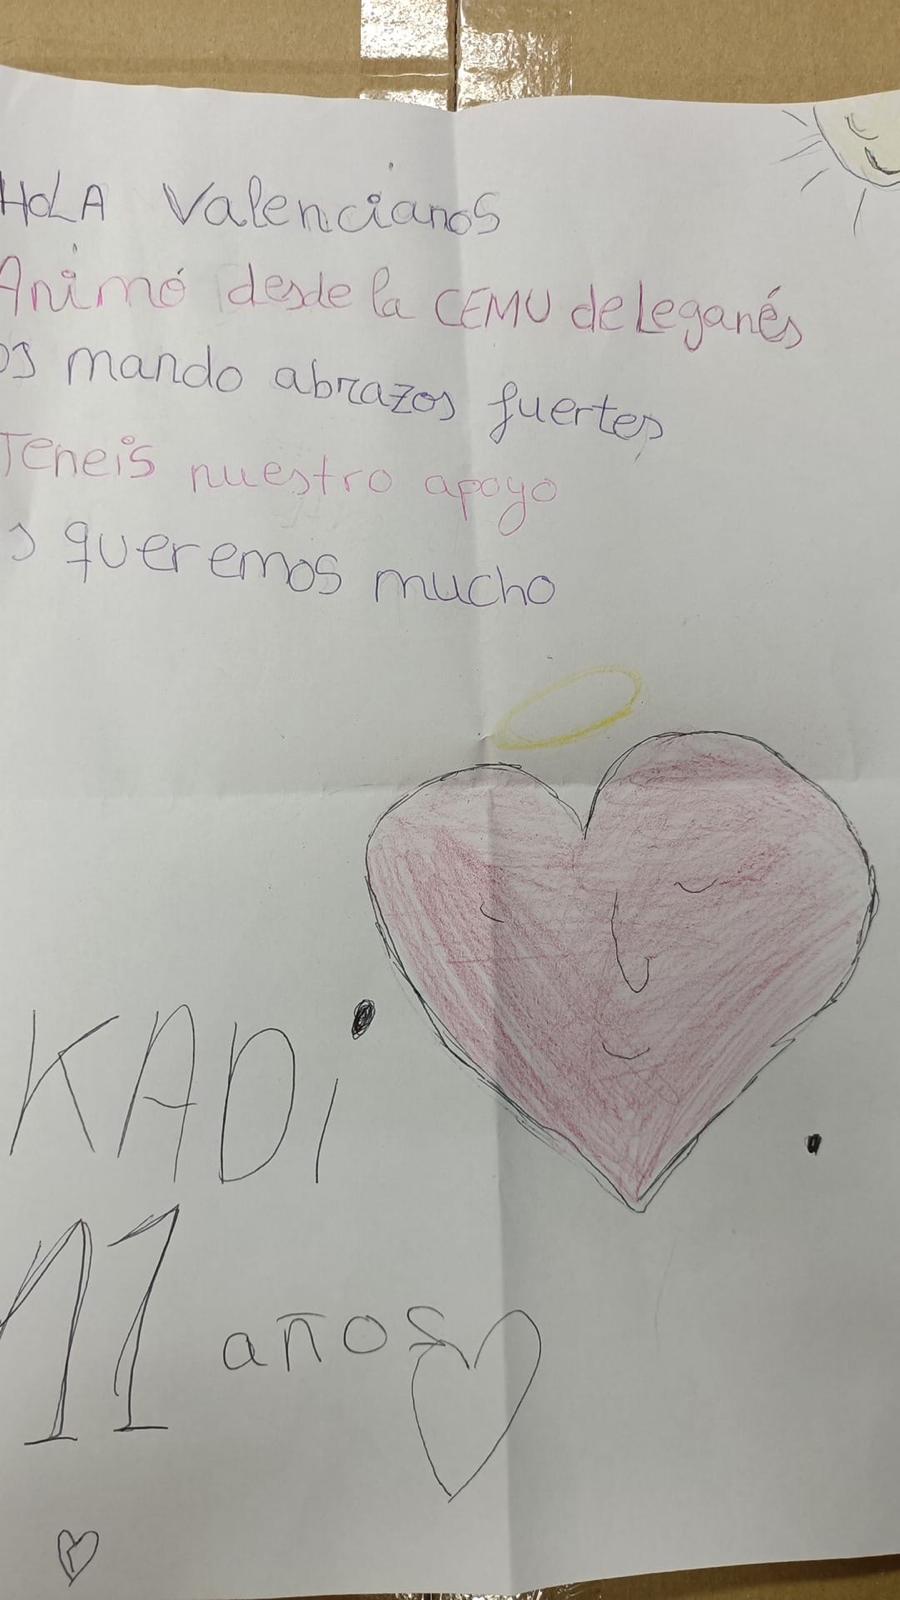 HOLA Valencianos
Animó desde la CEMU de Leganés
os mando abrazos fuertes
Teneis nuestro apoyo
s queremos mucho
KADi
11 años